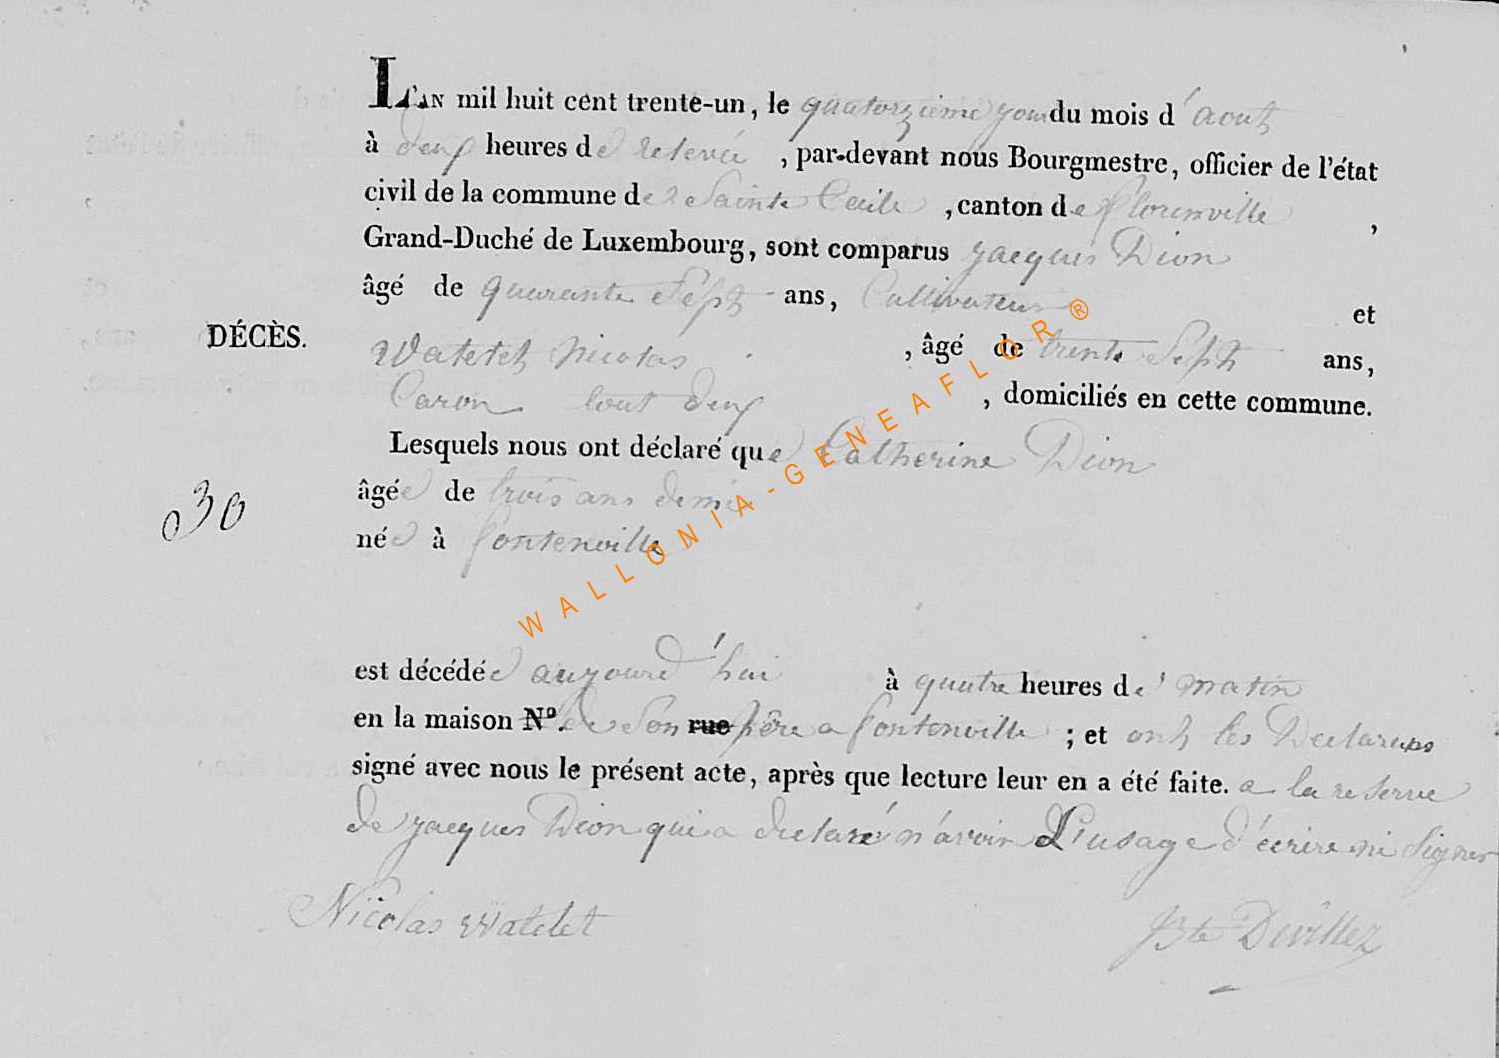 L'AN mil huit cent trente-un, le quatorzieme jour du mois d'aout
à deux heures de relevée, par-devant nous Bourgmestre, officier de l'état
civil de la commune de Sainte Cecile, canton de florenville,
Grand-Duché de Luxembourg, sont comparus jacques Dion
âgé de quarante sept ans, Cultivateur et
DÉCÈS.
Watelet nicolas, âgé de trente sept ans,
tout deux, domiciliés en cette commune.
Lesquels nous ont déclaré que Catherine Dion
âgée de trois ans demi
030
née à fontenoille
est décédée aujourd'hui à quatre heures de matin
en la maison Nº. de son rue père a fontenoille ; et ont les Declarans
signé avec nous le présent acte, après que lecture leur en a été faite. a la reserve
de jacques Dion qui a declaré n'avoir L'usage d'écrire ni signer
Nicolas Watelet Bte Devillez
WALLONIA-GENEAFLOR®